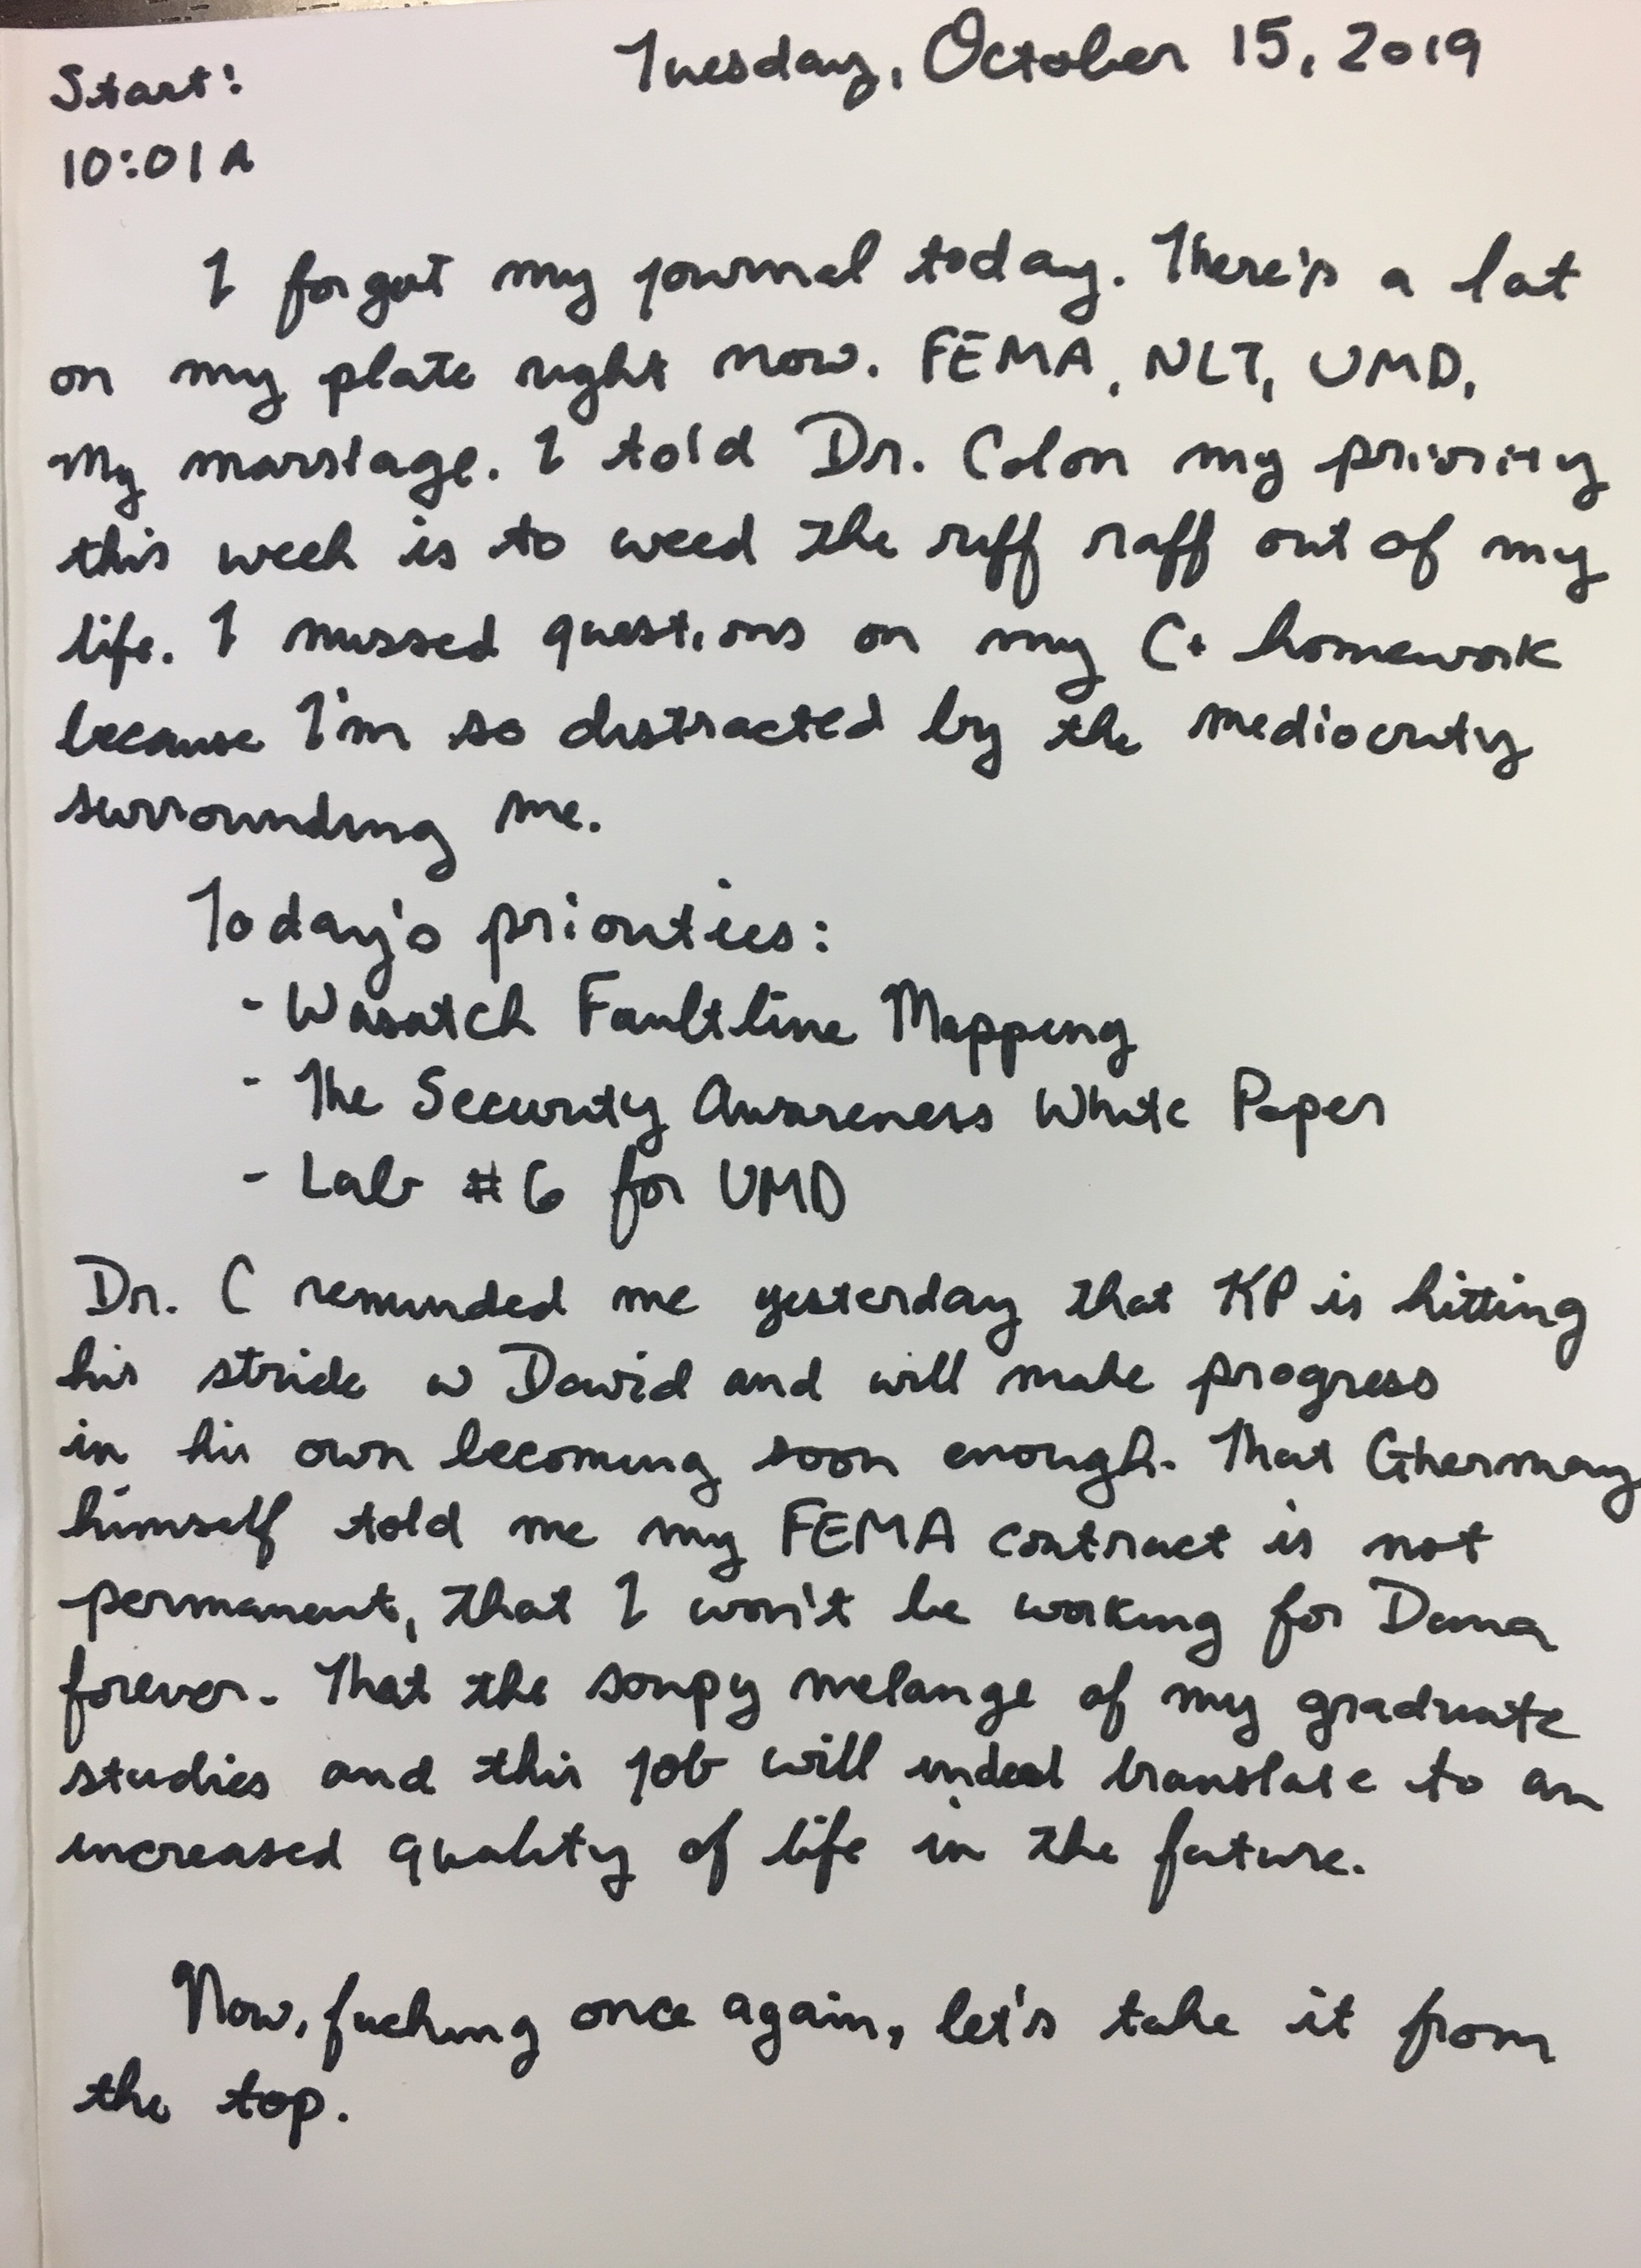 Tuesday, October 15, 2019
Start:
10:01A
I forgot my journal today. There's a lot
on my plate right now. FEMA, NLT, UMD,
My marriage. I told Dr. Colon my priority
this week is to weed the riff raff out of my
life. I missed questions on my C+ homework
because I'm so distracted by the mediocrity
surrounding me.
Today's priorities:
- Wasatch Faultline Mapping
- The Security Awareness White Paper
- Lab #6 for UMD
Dr. C reminded me yesterday that KP is hitting
his stride w David and will make progress
in his own becoming soon enough. That Ghermay
himself told me my FEMA contract is not
permanent, that I won't be working for Dana
forever. That the soupy melange of my graduate
studies and this job will indeed translate to an
increased quality of life in the future.
Now, fucking once again, let's take it from
the top.